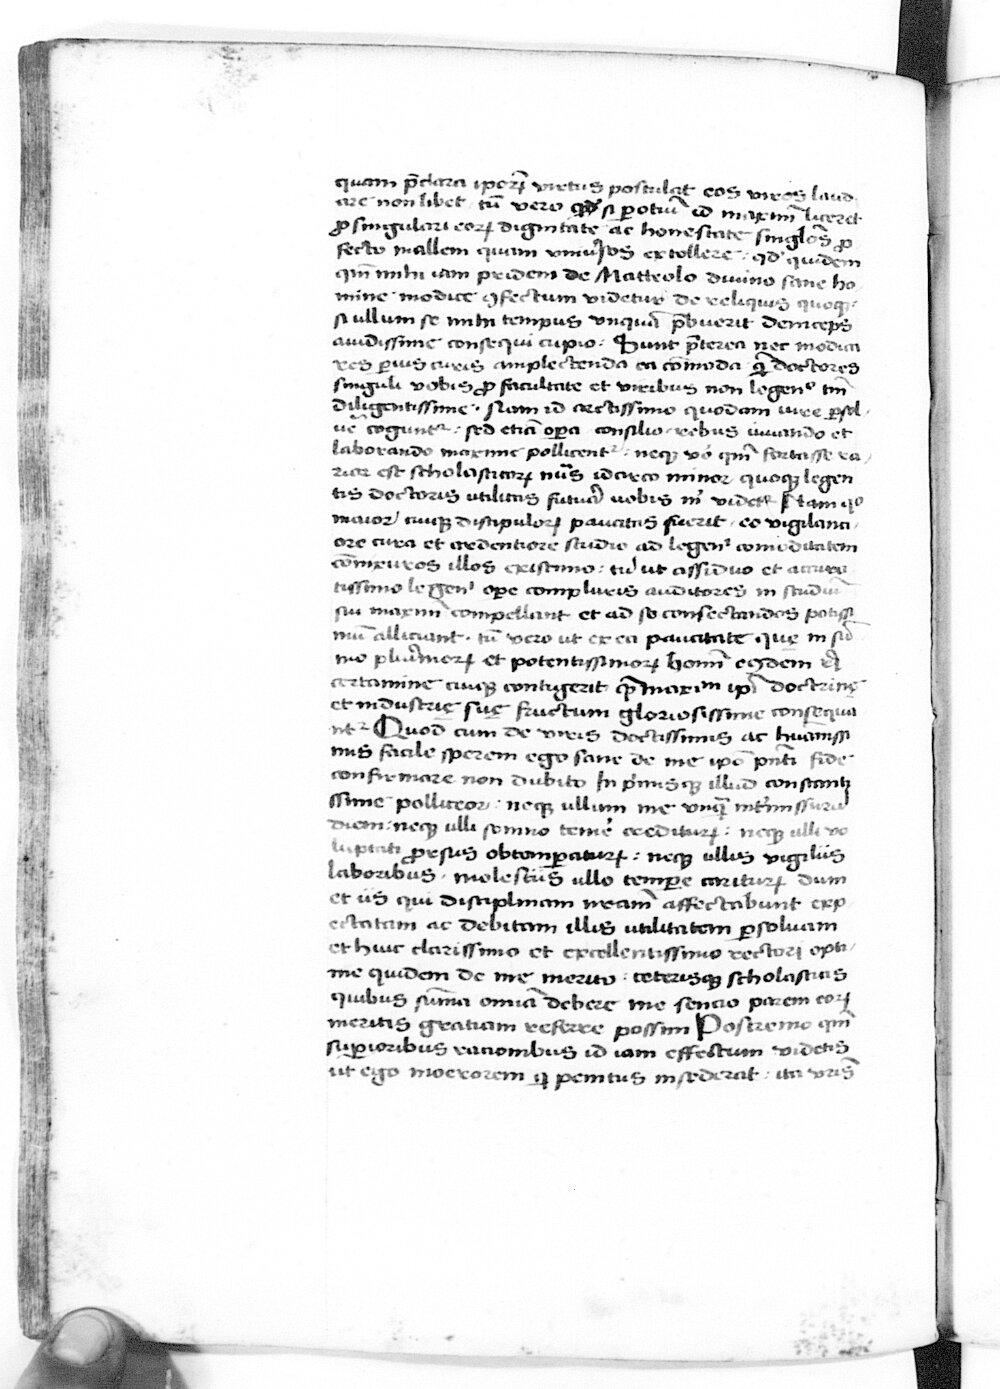 quam p̄clara ipoꝝ virtus postulat eos vires laud
are non libet . tū vero si potiꝰ id maxīe liceret
ꝓ singulari eoꝝ dignitate ac honestate singlōs ꝓ
fecto mallem quam vniuꝰsos extollere : qd' quidem
qm̄ mihi iam pridem de Mattreolo diuino sane ho
mine modice ꝯfectum videtur de reliquis quoqꝫ
si ullum se mihi tempus vnquā p̄buerit deinceps
auidissime consequi cupio : Sunt p̄terea nec modica
res ꝑuis curis amplectenda ea cōmoda ꝙ doctores
singuli vobis ꝓ facultate et viribus non legendo tm̄
diligentissime . Nam id arctissimo quodam iure ꝑsol
uē cogunt᷑ : sed etiā oꝑa consilio rebus iuuando et
laborando maxime pollicent᷑ : neqꝫ vo qm̄ fortasse ra
rior est scholasticoꝝ nūs idcirco minor quoqꝫ legen
tis doctoris utilitas futura vobis videt᷑ Nam quo
maior cuiqꝫ discipuloꝝ paucitas fuerit . eo vigilanci
ore cura et ardentiore studio ad legendi comoditatem
cōmpuros illos existimo : tū ut assiduo et accura
tissimo legendi oꝑe compluris auditores in studiū
sui maxīe compellant et ad se consectandos potissi
mū alliciant . tū vero ut ex ea paucitate quę in
mo plurimoꝝ et potentissimoꝝ homī eqdem
certamine cuiqꝫ contigerit maxim ipī doctrinę
et industrię suę fructum gloriosissime consequa
nt᷑ Quod cum de viris doctissimis ac humanissi
mis facile sperem ego sane de me ipō pn̄ti fide
confirmare non dubito In primisqꝫ illud constanti
ssime polliceor : neqꝫ ullum me vnqꝫ intermissurū
diem : neqꝫ ulli somno teme crediturꝝ : neqꝫ ulli vo
luptati ꝓrsus obtemꝑaturꝝ : neqꝫ ullis vigiliis
laboribus . molestiis ullo tempore cariturꝝ dum
et iis qui disciplinam meam affectabunt exp
ectatam ac debitam illis utilitatem ꝑsoluam
et huic clarissimo et excellentissimo rectori opti
me quidem de me merito : ceterisqꝫ scholasticis
quibus sūma omīa debere me sencio parem eoꝝ
meritis gratiam referre possim Postremo qm̄
suꝑioribus racionibus id iam effectum videtis
ut ego moerorem ꝙ penitus insederat : ita vrīs